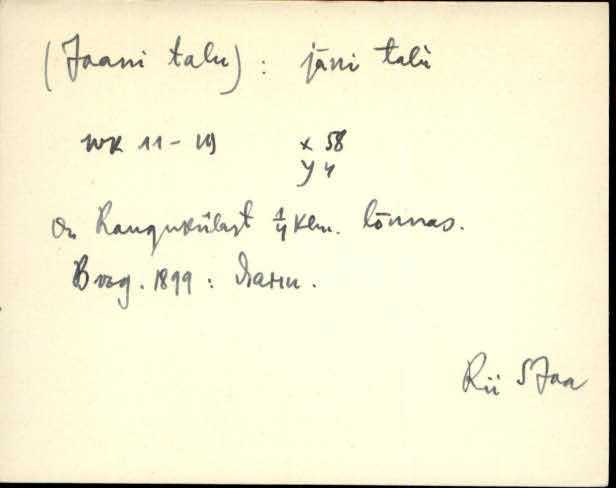 (Jaani talu) : jāni talù
WK 11-19 x 58
y 4
On Raugukülast 1/4 klm. lõunas.
B vrg. 1899 : Яани.
Rii S Jaa